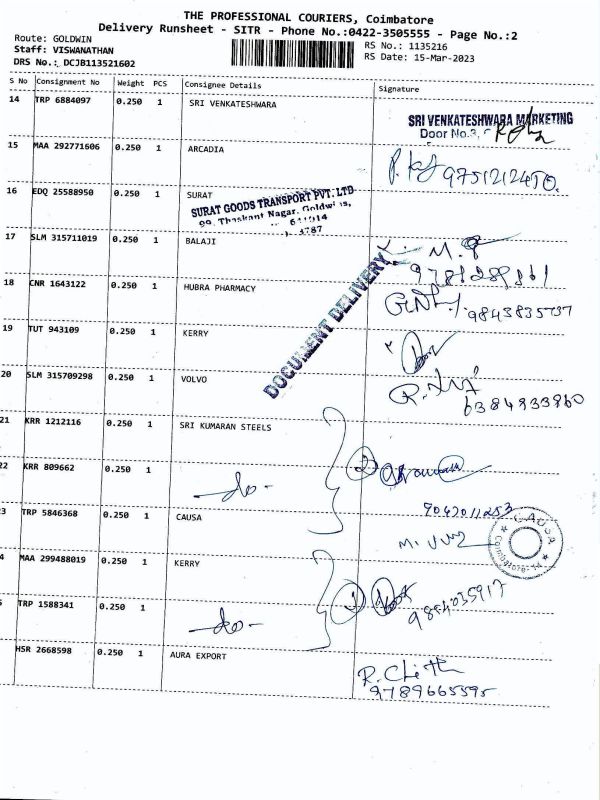 THE PROFESSIONAL COURIERS, Coimbatore
Delivery Runsheet - SITR - Phone No.:0422-3505555 - Page No.:2
Route: GOLDWIN
Staff: VISWANATHAN
DRS No.: DCJB113521602
RS No.: 1135216
RS Date: 15-Mar-2023
S No Consignment No Weight PCS Consignee Details Signature
14 TRP 6884097 0.250 1 SRI VENKATESHWARA
SRI VENKATESHWARA MARKETING
Door No.3,
15 MAA 292771606 0.250 1 ARCADIA
9751212450.
16 EDQ 25588950 0.250 1 SURAT
SURAT GOODS TRANSPORT PVT. LTD
99, Thaskant Nagar, Goldwins,
17 SLM 315711019 0.250 1 BALAJI
DOCUMENT DELIVERY
18 CNR 1643122 0.250 1 HUBRA PHARMACY
19 TUT 943109 0.250 1 KERRY
20 SLM 315709298 0.250 1 VOLVO
21 KRR 1212116 0.250 1 SRI KUMARAN STEELS
22 KRR 809662 0.250 1 -do-
9042011253
3 TRP 5846368 0.250 1 CAUSA
CAUSA
Coimbatore-14
4 MAA 299488019 0.250 1 KERRY
TRP 1588341 0.250 1 -do-
HSR 2668598 0.250 1 AURA EXPORT
9789665595